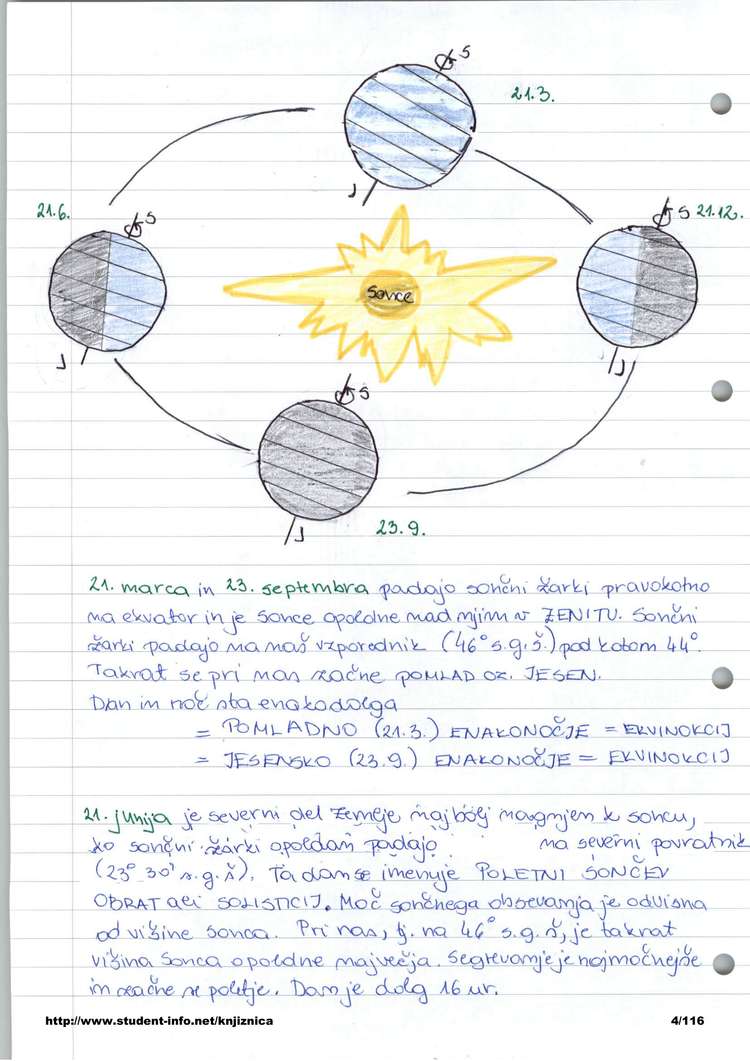 S
21.3.
J
21.6.
S
S 21.12.
Sonce
J
J
S
J
23.9.
21. marca in 23. septembra padajo sončni žarki pravokotno
na ekvator in je sonce opoldne nad njim v ZENITU. Sončni
žarki padajo na naš vzporednik (46° s.g.š.) pod kotom 44°.
Takrat se pri nas začne POMLAD OZ. JESEN.
Dan in noč sta enakodolga
= POMLADNO (21.3.) ENAKONOČJE = EKVINOKCIJ
= JESENSKO (23.9.) ENAKONOČJE = EKVINOKCIJ
21. junija je severni del Zemlje najbolj nagnjen k soncu,
ko sončni žarki opoldan padajo na severni povratnik
(23° 30' s.g.š). Ta dan se imenuje POLETNI SONČEV
OBRAT ali SOLISTICIJ. Moč sončnega obsevanja je odvisna
od višine sonca. Pri nas, tj. na 46° s.g.š, je takrat
višina sonca opoldne največja. Segrevanje je najmočnejše
in začne se poletje. Dan je dolg 16 ur.
http://www.student-info.net/knjiznica
4/116